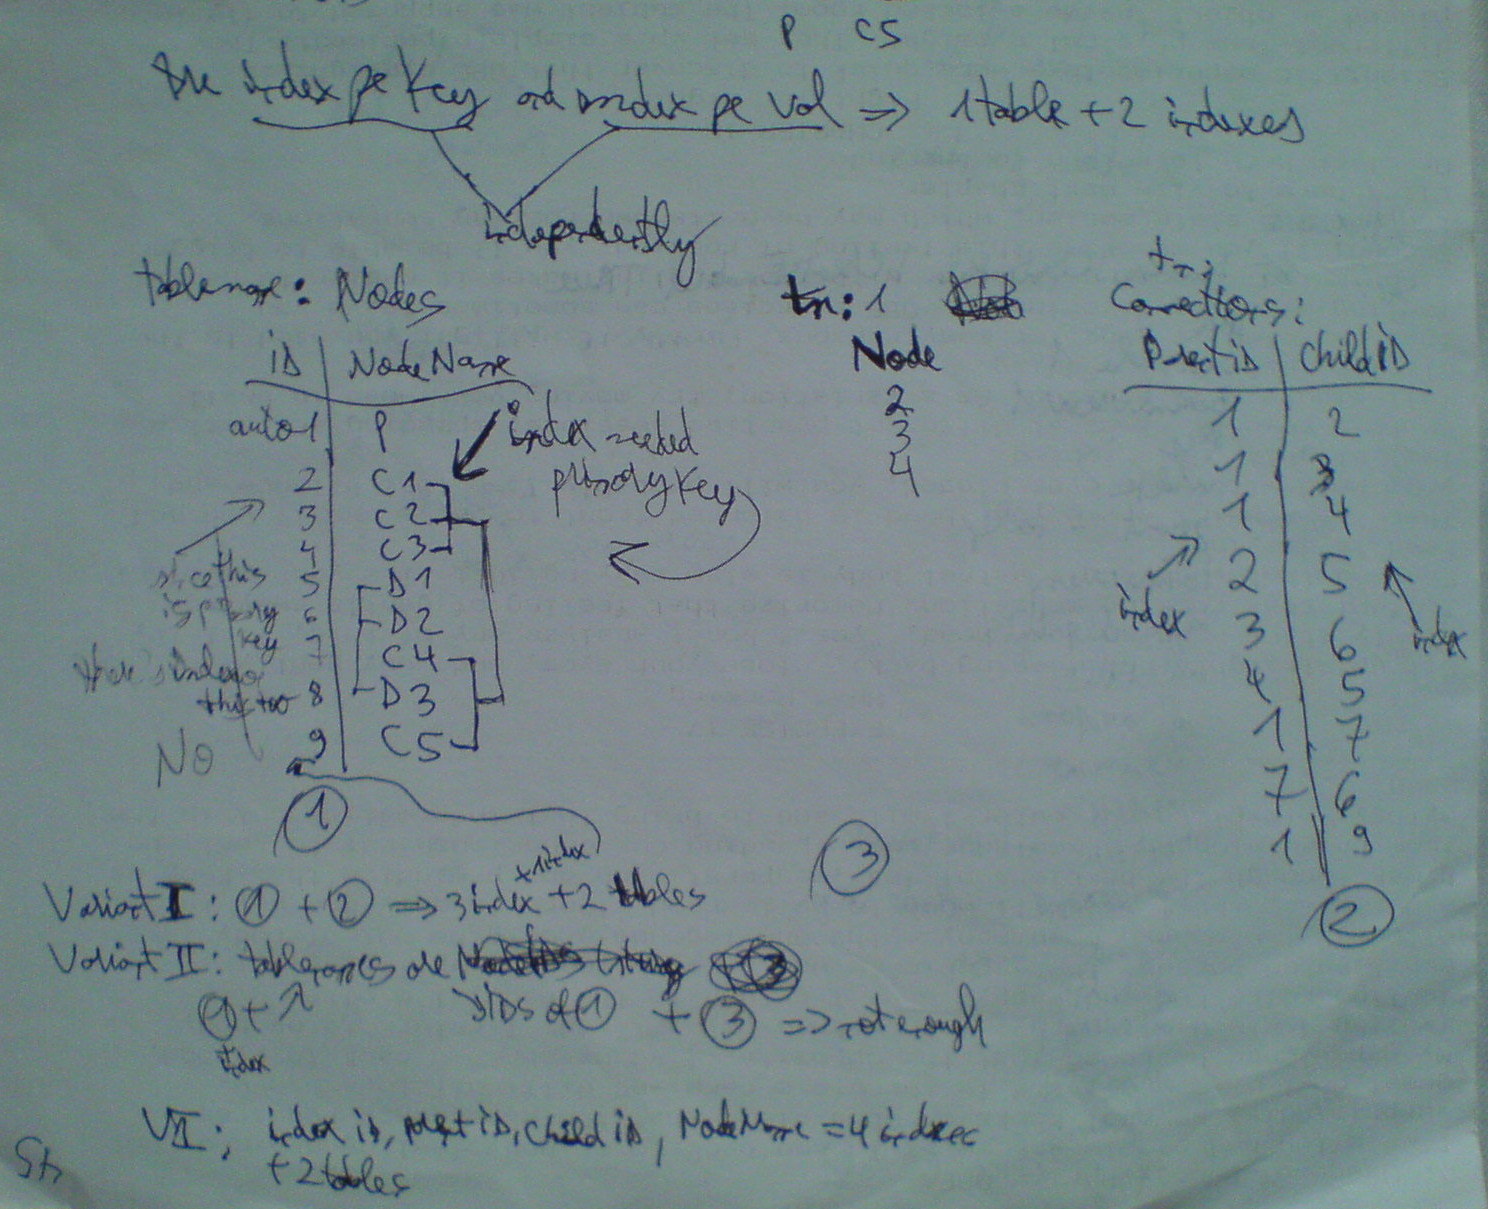 P C5
index pe Key and index pe Val => 1 table + 2 indexes
independently
tablename: Nodes
iD NodeName
auto 1 P
2 C1
3 C2
4 C3
5 D1
6 D2
7 C4
8 D3
9 C5
index needed
primary key
since this
is primary
key
this too
NO
1
tn: 1
Node
2
3
4
3
tn:
Connections:
ParentiD ChildiD
1 2
1 3
1 4
2 5
3 6
4 5
1 7
7 6
1 9
index
index
2
+1index
Variant I: 1 + 2 => 3 index + 2 tables
Variant II: tablenames are
1 + iDs of 1 + 3 => not enough
+
index
VII: index iD, parent iD, child iD, NodeName = 4 indexes
+ 2 tables